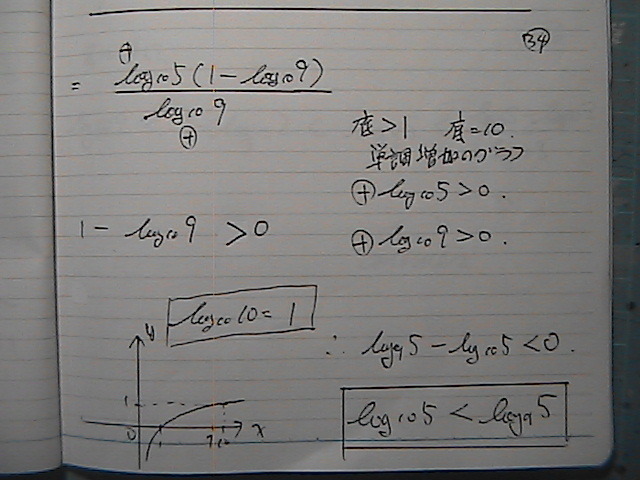 34
⊕
= log₁₀5(1-log₁₀9) / log₁₀9
⊕
底>1 底=10.
単調増加のグラフ
⊕ log₁₀5>0.
1 - log₁₀9 >0
⊕ log₁₀9>0.
log₁₀10=1
∴ log₉5-log₁₀5<0.
log₁₀5<log₉5
y
1
0 1 9 10 x